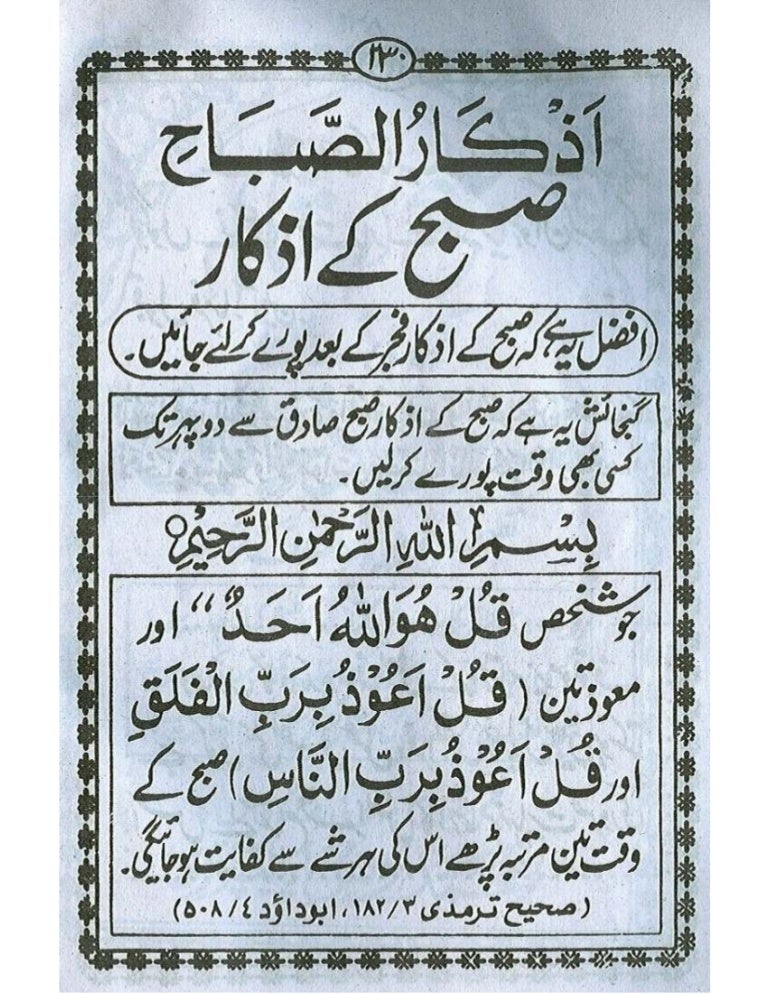 ۲۳۰
اَذْكَارُ الصَّبَاحِ
صبح کے اذکار
افضل یہ ہے کہ صبح کے اذکار فجر کے بعد پورے کر لئے جائیں۔
گنجائش یہ ہے کہ صبح کے اذکار صبح صادق سے دوپہر تک
کسی بھی وقت پورے کرلیں۔
بِسْمِ اللهِ الرَّحْمٰنِ الرَّحِيْمِ○
جو شخص قُلْ هُوَ اللهُ اَحَدٌ‘‘ اور
معوذتین (قُلْ اَعُوْذُ بِرَبِّ الْفَلَقِ
اور قُلْ اَعُوْذُ بِرَبِّ النَّاسِ) صبح کے
وقت تین مرتبہ پڑھے اس کی ہر شے سے کفایت ہوجائیگی۔
(صحیح ترمذی ۱۸۲/۳، ابوداؤد ٤/ ۵۰۸)